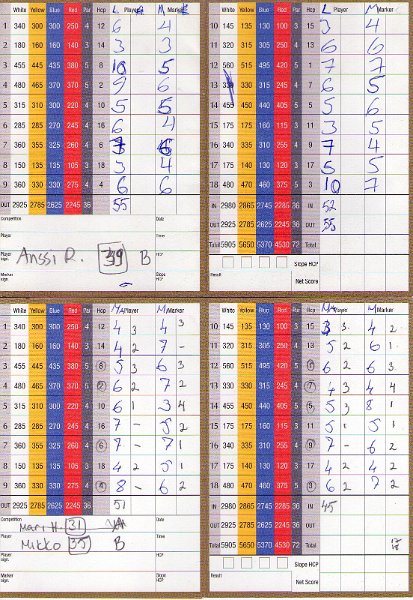 White Yellow Blue Red Par Hcp L Player M Marker
1 340 300 300 250 4 12 6 4
2 180 160 160 140 3 14 3 3
3 455 445 435 380 5 8 10 5
4 480 465 370 5 2 9 6
5 315 310 220 4 10 5 5
6 285 285 270 245 4 16 6 4
7 360 355 325 4 6 6
8 150 135 135 105 3 18 3 4
9 360 330 330 275 4 4 6 6
OUT 2925 2785 2625 2245 36 OUT 55
Competition Date
Player Time
Anssi R. 39 B
Player Sign. HCP
Marker Sign. Slope HCP
White Yellow Blue Red Par Hcp L Player M Marker
10 145 135 130 100 3 15 3 4
11 320 315 305 250 4 13 6 6
12 560 515 495 420 5 1 7 7
13 330 330 315 245 4 7 6 5
14 455 450 440 405 5 5 5 6
15 175 175 160 115 3 11 3 5
16 340 335 310 255 4 9 7 4
17 175 140 120 120 3 17 5 5
18 480 470 460 375 5 3 10 7
IN 2980 2865 2745 2285 36 IN 52
OUT 2925 2785 2625 2245 36 OUT 55
Total 5905 5650 5370 4530 72 Total
Slope HCP
Result Scored Net Score
White Yellow Blue Red Par Hcp MA Player M Marker
1 340 300 300 250 4 12 4 3 4 3
2 180 160 160 140 3 14 4 2 7 -
3 455 445 435 380 5 8 5 3 6 3
4 480 465 370 5 2 6 2 7 2
5 315 310 220 4 10 6 1 3 4
6 285 285 270 245 4 16 7 - 5 2
7 360 355 325 4 6 7 - 7 1
8 150 135 135 105 3 18 4 2 5 1
9 360 330 330 275 4 4 8 - 6 2
OUT 2925 2785 2625 2245 36 OUT 51
Competition Date
Mari H. 31
Player Time
Mikko 35 B
Player Sign. HCP
Marker Sign.
White Yellow Blue Red Par Hcp MA Player M Marker
10 145 135 130 100 3 15 3 3 4 2
11 320 315 305 250 4 13 5 2 6 1
12 560 515 495 420 5 1 6 2 6 3
13 330 330 315 245 4 7 4 3 4 4
14 455 450 440 405 5 5 5 3 8 1
15 175 175 160 115 3 11 5 1 5 1
16 340 335 310 255 4 9 7 - 6 2
17 175 140 120 120 3 17 4 2 4 2
18 480 470 460 375 5 3 6 2 7 2
IN 2980 2865 2745 2285 36 IN 45
OUT 2925 2785 2625 2245 36 OUT
Total 5905 5650 5370 4530 72 Total
Slope HCP
Result Scored Net Score